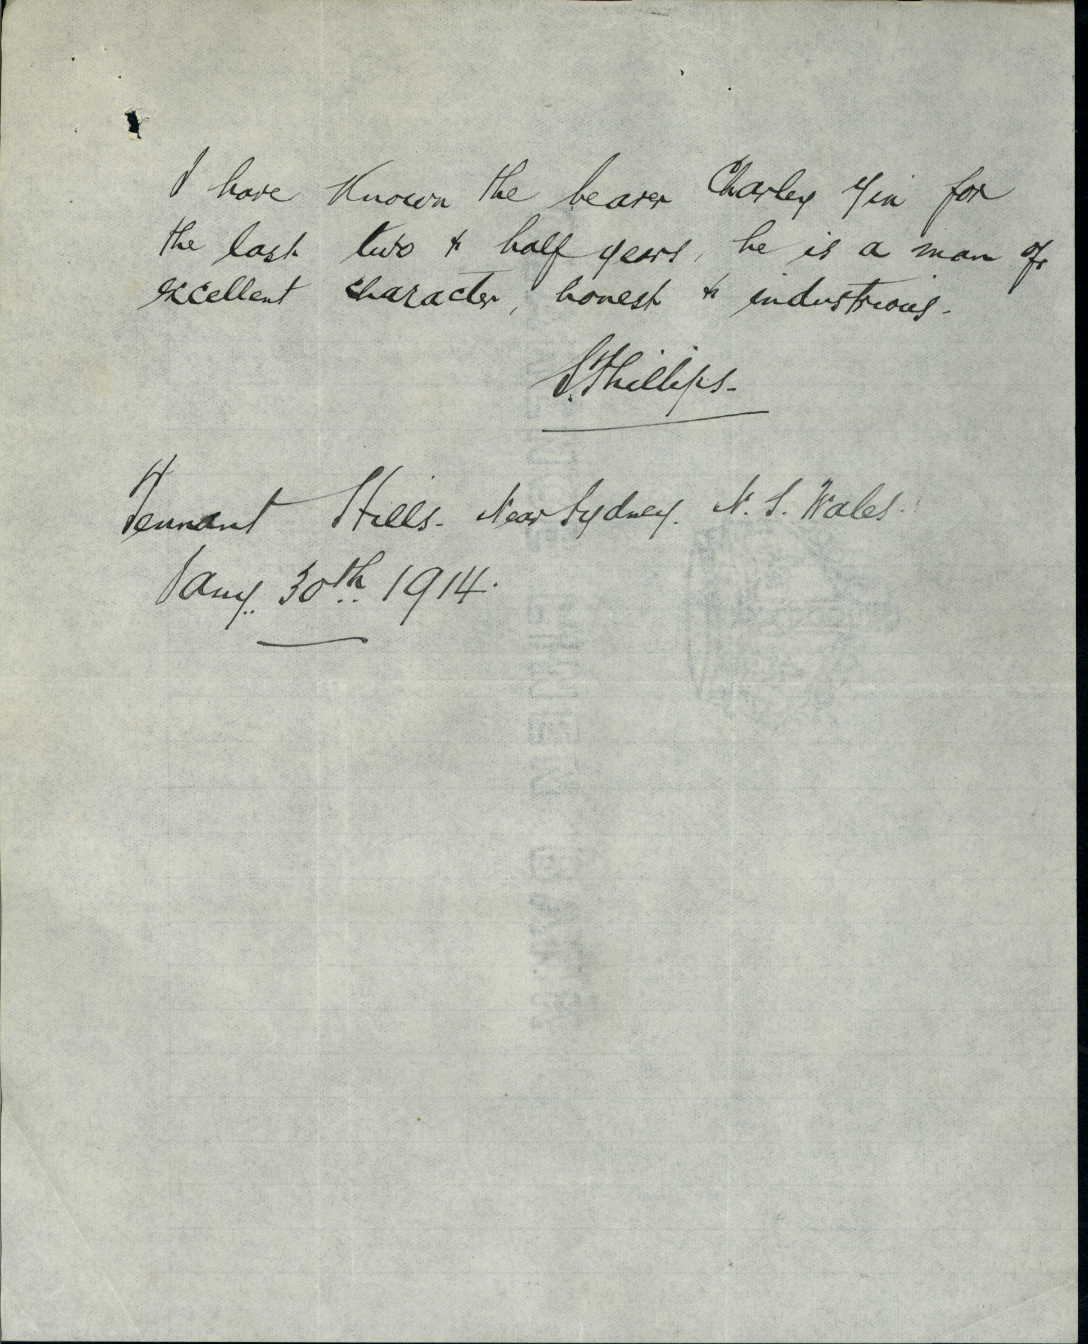 I have Known the bearer Charley Yin for
the last two & half years, he is a man of
excellent character, honest & industrious.
S. Phillips.
Pennant Hills. Near Sydney. N. S. Wales.
Jany. 30th. 1914.